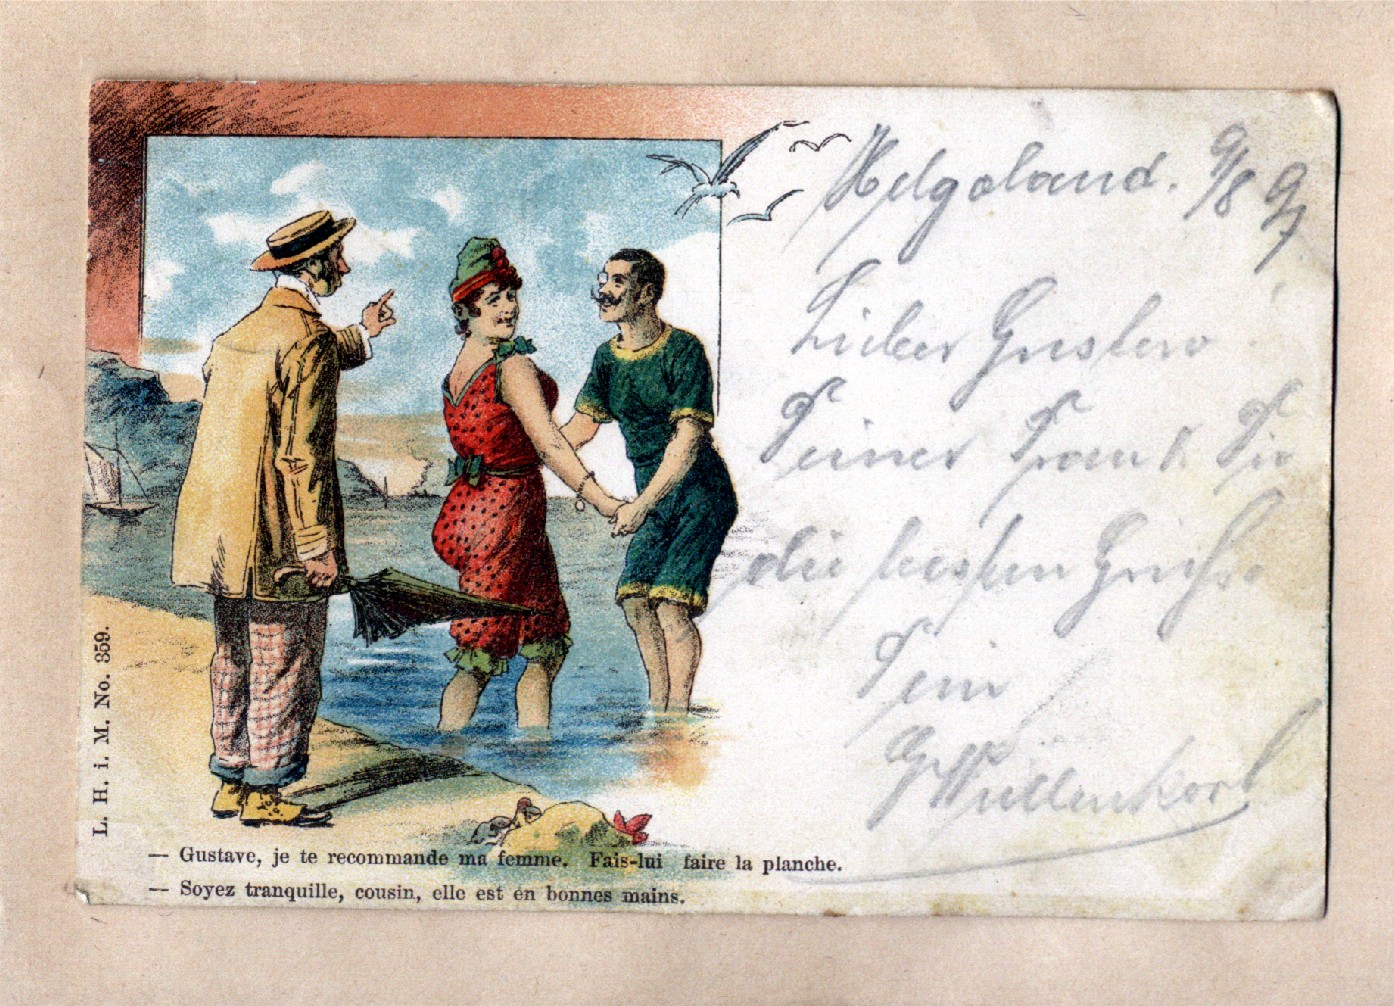 Helgoland. 9/8 97
Lieber Gustav!
Deiner Frau & Dir
die besten Grüße
Dein
L. H. i. M. No. 359.
— Gustave, je te recommande ma femme. Fais-lui faire la planche.
— Soyez tranquille, cousin, elle est en bonnes mains.